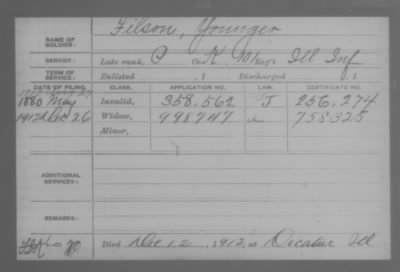 Filson, Younger
NAME OF SOLDIER:
SERVICE: Late rank, P Co. K, Reg't Ill Inf
TERM OF SERVICE: Enlisted , 1 Discharged , 1
DATE OF FILING. CLASS. APPLICATION NO. LAW. CERTIFICATE NO.
1880 May Invalid, 358,562 J 256,274
1912 Dec 26 Widow, 998747 758325
Minor,
ADDITIONAL SERVICES:
REMARKS:
Died Dec 12, 1912, at Decatur Ill